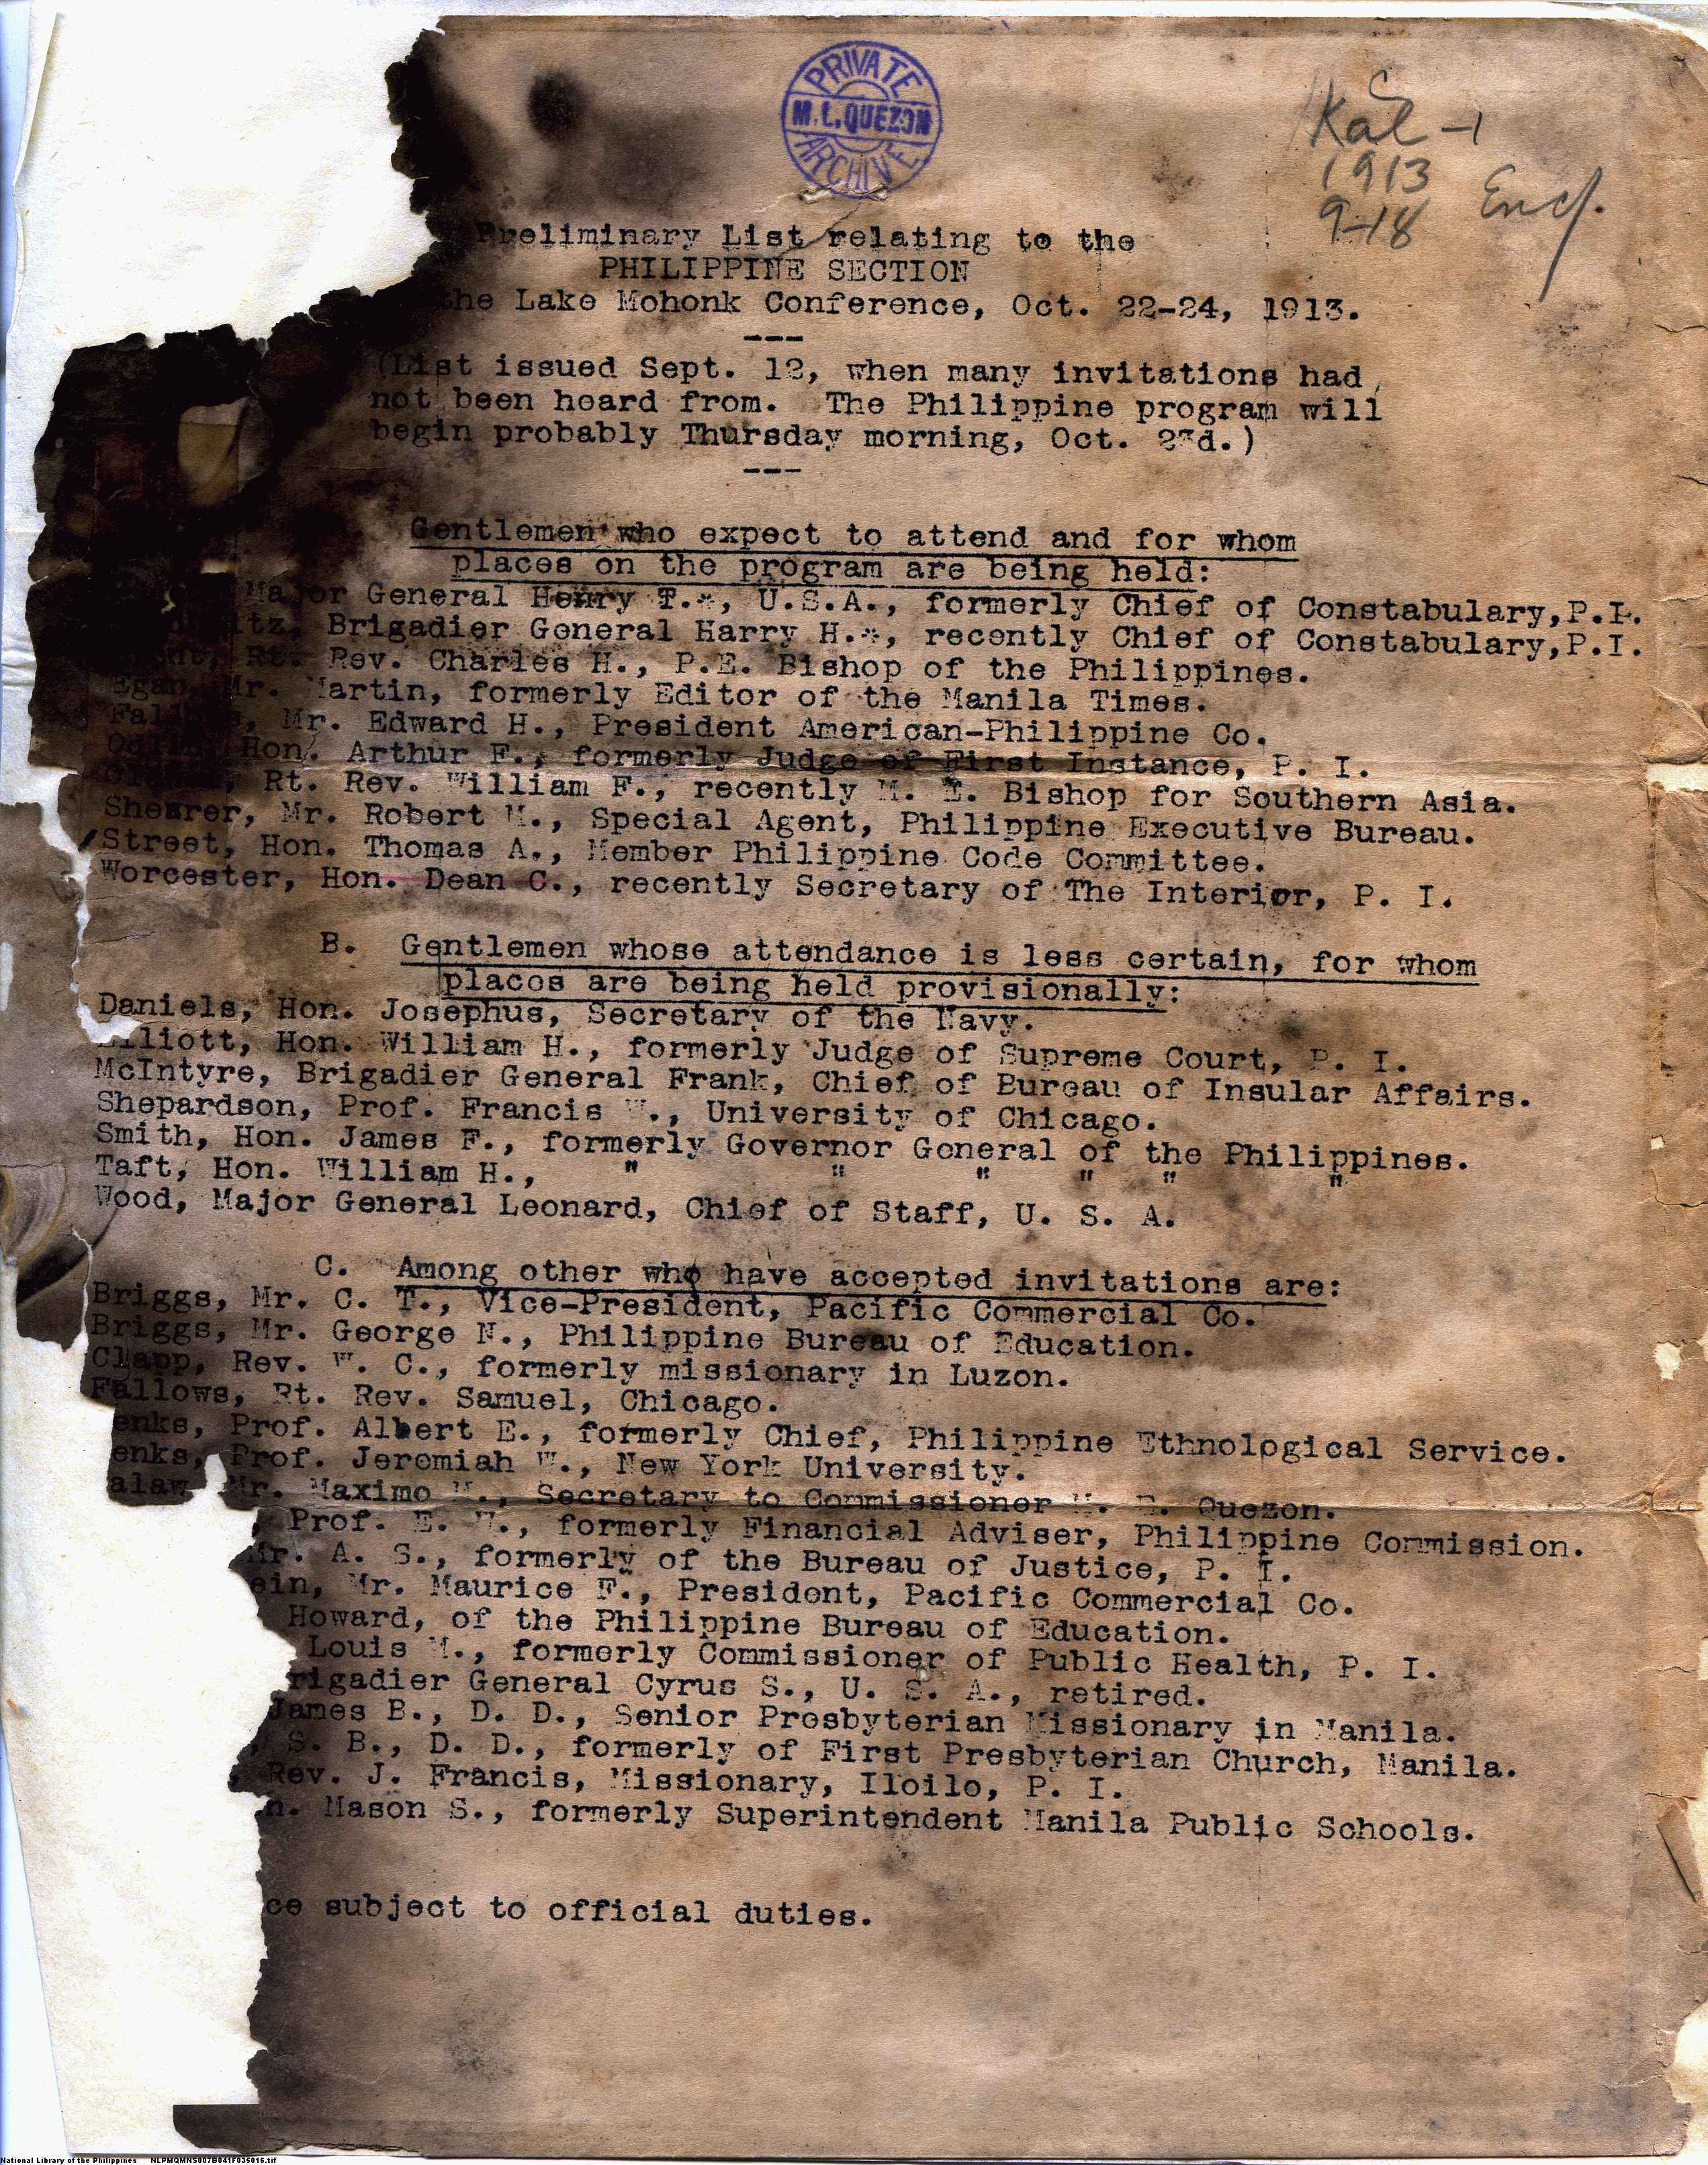 PRIVATE
M.L.QUEZON
ARCHIVE
Kal-1
1913
9-18 Encl.
Preliminary List relating to the
PHILIPPINE SECTION
the Lake Mohonk Conference, Oct. 22-24, 1913.
---
(List issued Sept. 12, when many invitations had
not been heard from. The Philippine program will
begin probably Thursday morning, Oct. 23d.)
---
Gentlemen who expect to attend and for whom
places on the program are being held:
Major General Henry T.*, U.S.A., formerly Chief of Constabulary,P.I.
Brigadier General Harry H.*, recently Chief of Constabulary,P.I.
Rt. Rev. Charles H., P.E. Bishop of the Philippines.
Egan, Mr. Martin, formerly Editor of the Manila Times.
Mr. Edward H., President American-Philippine Co.
Hon. Arthur F., formerly Judge of First Instance, P. I.
Rt. Rev. William F., recently M. E. Bishop for Southern Asia.
Shearer, Mr. Robert M., Special Agent, Philippine Executive Bureau.
Street, Hon. Thomas A., Member Philippine Code Committee.
Worcester, Hon. Dean C., recently Secretary of The Interior, P. I.
B. Gentlemen whose attendance is less certain, for whom
places are being held provisionally:
Daniels, Hon. Josephus, Secretary of the Navy.
Elliott, Hon. William H., formerly Judge of Supreme Court, P. I.
McIntyre, Brigadier General Frank, Chief of Bureau of Insular Affairs.
Shepardson, Prof. Francis W., University of Chicago.
Smith, Hon. James F., formerly Governor General of the Philippines.
Taft, Hon. William H., " " " " " "
Wood, Major General Leonard, Chief of Staff, U. S. A.
C. Among other who have accepted invitations are:
Briggs, Mr. C. T., Vice-President, Pacific Commercial Co.
Briggs, Mr. George N., Philippine Bureau of Education.
Clapp, Rev. W. C., formerly missionary in Luzon.
Fallows, Rt. Rev. Samuel, Chicago.
enks, Prof. Albert E., formerly Chief, Philippine Ethnological Service.
enks, Prof. Jeremiah W., New York University.
alaw Mr. Maximo M., Secretary to Commissioner M. L. Quezon.
, Prof. E. W., formerly Financial Adviser, Philippine Commission.
Mr. A. S., formerly of the Bureau of Justice, P. I.
ein, Mr. Maurice F., President, Pacific Commercial Co.
Howard, of the Philippine Bureau of Education.
Louis M., formerly Commissioner of Public Health, P. I.
rigadier General Cyrus S., U. S. A., retired.
James B., D. D., Senior Presbyterian Missionary in Manila.
, S. B., D. D., formerly of First Presbyterian Church, Manila.
Rev. J. Francis, Missionary, Iloilo, P. I.
n. Mason S., formerly Superintendent Manila Public Schools.
ce subject to official duties.
National Library of the Philippines NLPMQMNS007B041F035016.tif